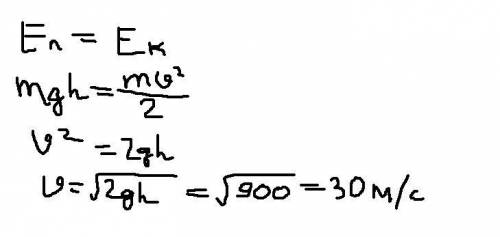 Eп = Eк
mgh = mv²/2
v² = 2gh
v = √2gh = √900 = 30 м/с